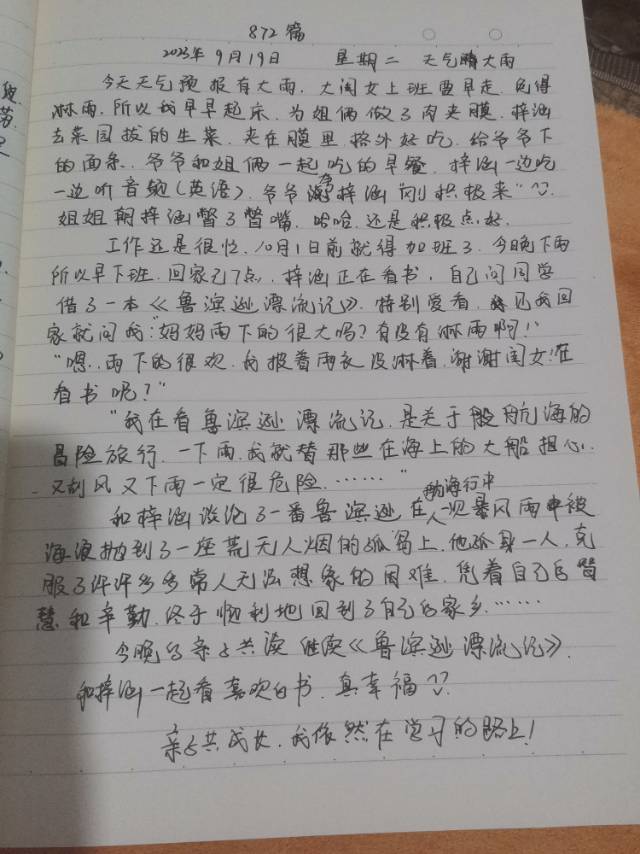 872篇
2023年9月19日 星期二 天气晴大雨
今天天气预报有大雨，大闺女上班要早走，免得
淋雨，所以我早早起床，为姐俩做了肉夹膜，梓涵
去菜园拔的生菜，夹在膜里，格外好吃，给爷爷下
的面条，爷爷和姐俩一起吃的早餐，梓涵一边吃
一边听音频(英语)，爷爷夸梓涵"刚积极来"
姐姐朝梓涵瞥了瞥嘴，哈哈，还是积极点好。
工作还是很忙，10月1日前就得加班了，今晚下雨
所以早下班，回家已7点，梓涵正在看书，自己问同学
借了一本《鲁滨逊漂流记》，特别爱看，见我回
家就问我："妈妈雨下的很大吗？有没有淋雨啊！"
"嗯，雨下的很欢，我披着雨衣没淋着，谢谢闺女！在
看书呢？"
"我在看鲁滨逊漂流记，是关于航海的
冒险旅行，一下雨，我就替那些在海上的大船担心，
又刮风又下雨一定很危险……"
和梓涵谈论了一番鲁滨逊在一次航海行中暴风雨中被
海浪抛到了一座荒无人烟的孤岛上，他孤身一人，克
服了许许多多常人无法想象的困难，凭着自己的智
慧和辛勤，终于顺利地回到了自己的家乡……
今晚的亲子共读继续《鲁滨逊漂流记》，
和梓涵一起看喜欢的书，真幸福
亲子共成长，我依然在学习的路上！